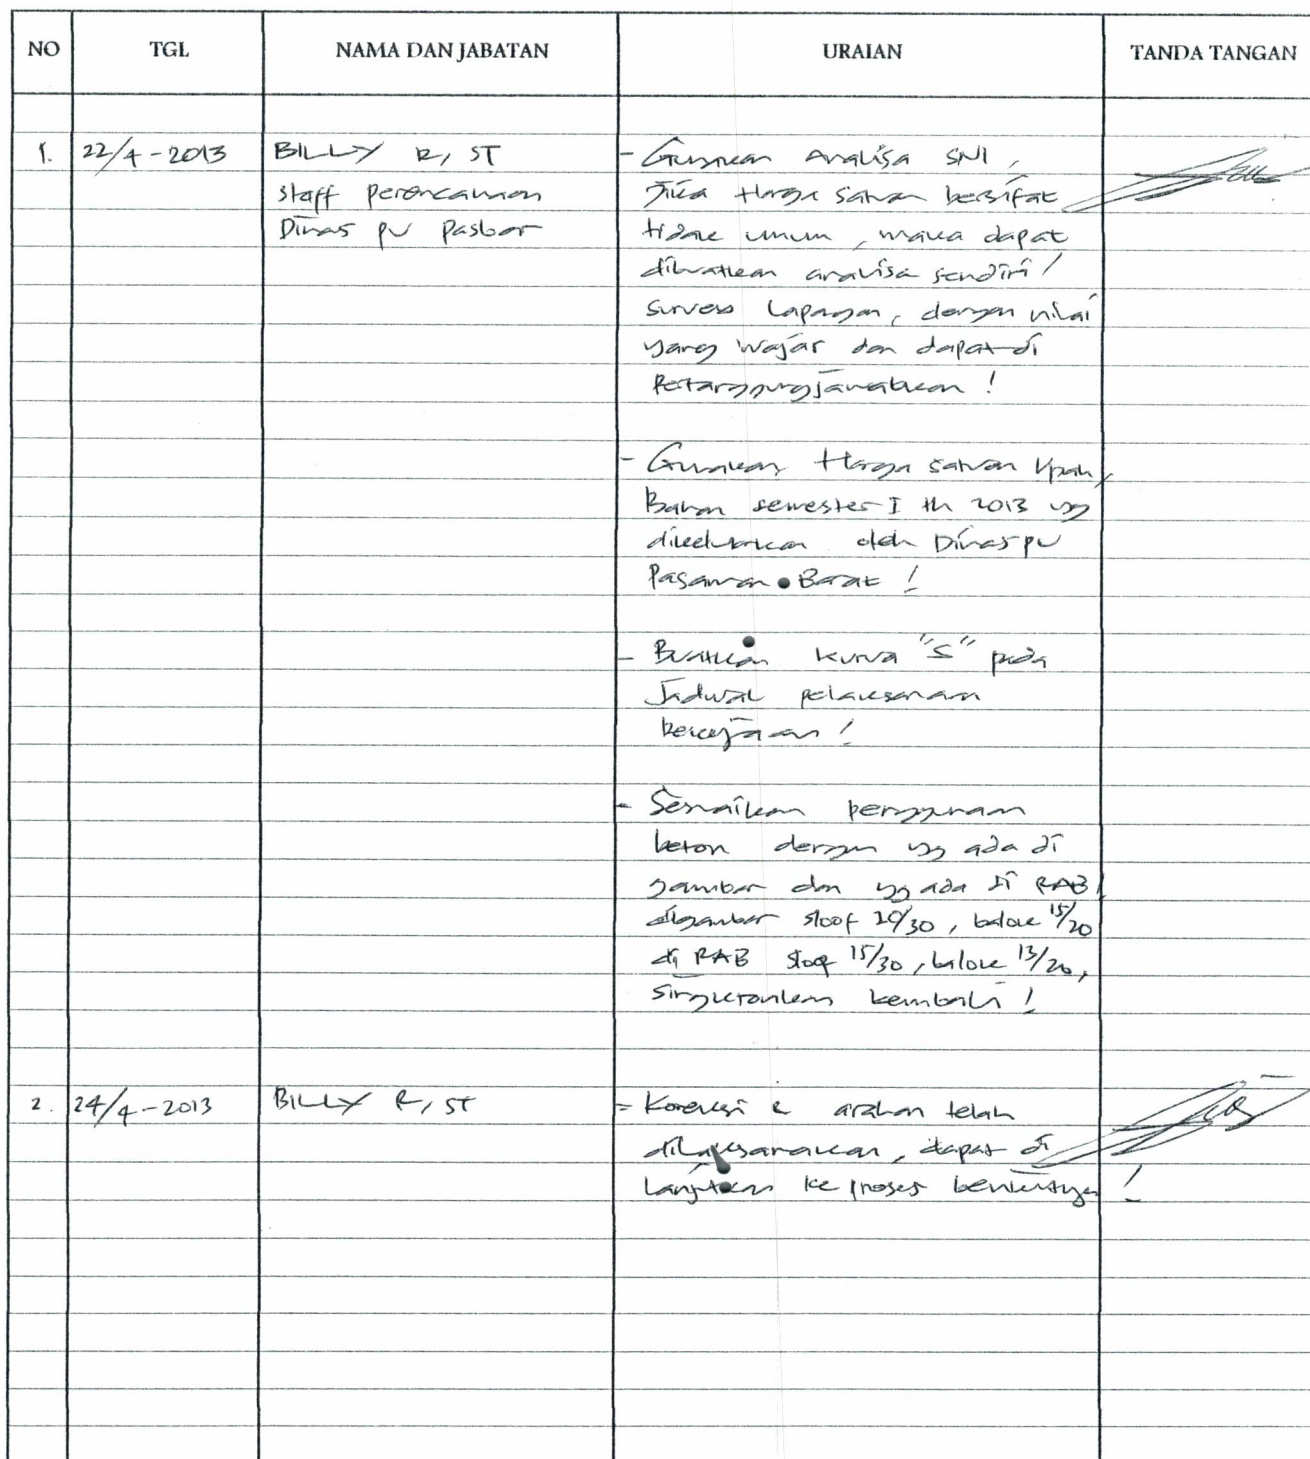 NO TGL NAMA DAN JABATAN URAIAN TANDA TANGAN
1. 22/4-2013 BILLY R, ST - Gunakan Analisa SNI,
staff perencanaan Jika Harga Satuan bersifat
Dinas PU Pasbar tidak umum, maka dapat
dibuatkan analisa sendiri/
survey Lapangan, dengan nilai
yang wajar dan dapat di
Pertanggungjawabkan !
- Gunakan Harga satuan Upah,
Bahan semester I th 2013 yg
dikeluarkan oleh Dinas PU
Pasaman Barat !
- Buatkan kurva "S" pada
Jadwal pelaksanaan
pekerjaan !
- Sesuaikan penggunaan
beton dengan yg ada di
gambar dan yg ada di RAB!
digambar sloof 20/30, balok 15/20
di RAB sloof 15/30, balok 13/20,
singkronkan kembali !
2. 24/4-2013 BILLY R, ST - Koreksi & arahan telah
dilaksanakan, dapat di
Lanjutkan ke proses berikutnya !